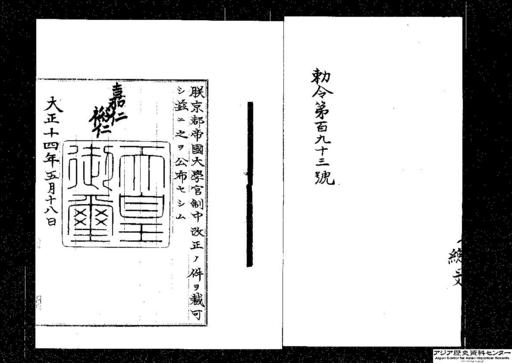 勅令第百九十三號
朕京都帝國大學官制中改正ノ件ヲ裁可
シ茲ニ之ヲ公布セシム
嘉仁
裕仁
天皇
御璽
大正十四年五月十八日
アジア歴史資料センター
Japan Center for Asian Historical Records